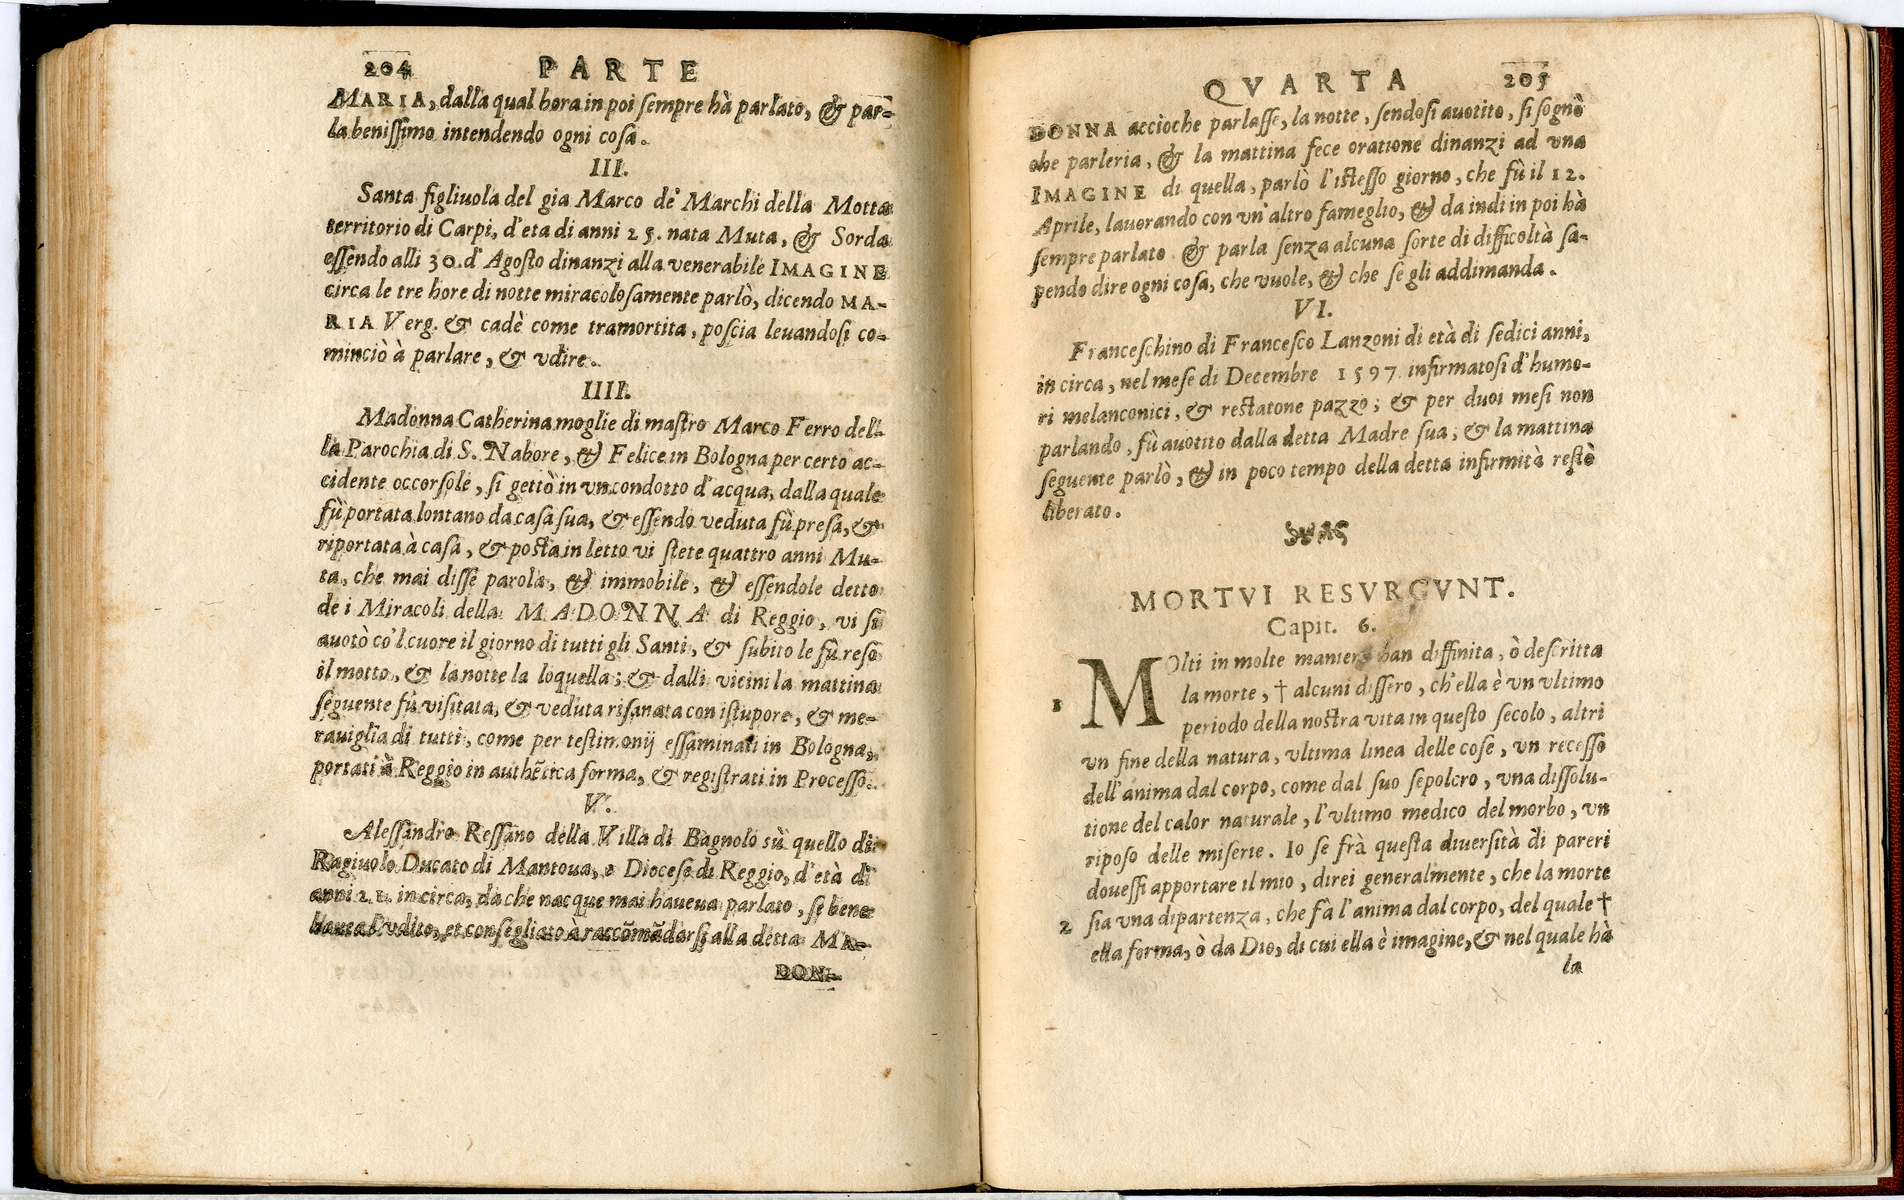 204 PARTE
MARIA, dalla qual hora in poi sempre hà parlato, & par-
la benissimo intendendo ogni cosa.
III.
Santa figliuola del gia Marco de' Marchi della Motta
territorio di Carpi, d'eta di anni 25. nata Muta, & Sorda
essendo alli 30. d'Agosto dinanzi alla venerabile IMAGINE
circa le tre hore di notte miracolosamente parlò, dicendo MA-
RIA Verg. & cadè come tramortita, poscia leuandosi co-
minciò à parlare, & vdire.
IIII.
Madonna Catherina moglie di mastro Marco Ferro del-
la Parochia di S. Nabore, & Felice in Bologna per certo ac-
cidente occorsole, si gettò in vn condotto d'acqua, dalla quale
fù portata lontano da casa sua, & essendo veduta fù presa, &
riportata à casa, & posta in letto vi stete quattro anni Mu-
ta, che mai disse parola, & immobile, & essendole detto
de i Miracoli della MADONNA di Reggio, vi si
auotò co'l cuore il giorno di tutti gli Santi, & subito le fù reso
il motto, & la notte la loquella; & dalli vicini la mattina
seguente fù visitata, & veduta risanata con istupore, & me-
rauiglia di tutti, come per testimonij essaminati in Bologna,
portati à Reggio in authẽtica forma, & registrati in Processo.
V.
Alessandro Ressano della Villa di Bagnolo sù quello di
Ragiuolo Ducato di Mantoua, e Diocese di Reggio, d'età di
anni 21. in circa, da che nacque mai haueua parlato, se bene
hauea l'vdito, et consegliato à raccõmãdarsi alla detta MA-
DON-
QVARTA 205
DONNA accioche parlasse, la notte, sendosi auotito, si sognò
che parleria, & la mattina fece oratione dinanzi ad vna
IMAGINE di quella, parlò l'istesso giorno, che fù il 12.
Aprile, lauorando con vn'altro fameglio, & da indi in poi hà
sempre parlato & parla senza alcuna sorte di difficoltà sa-
pendo dire ogni cosa, che vuole, & che se gli addimanda.
VI.
Franceschino di Francesco Lanzoni di età di sedici anni,
in circa, nel mese di Decembre 1597 infirmatosi d'humo-
ri melanconici, & restatone pazzo; & per duoi mesi non
parlando, fù auotito dalla detta Madre sua; & la mattina
seguente parlò, & in poco tempo della detta infirmità restò
liberato.
MORTVI RESVRGVNT.
Capit. 6.
MOlti in molte maniere han diffinita, ò descritta
1 la morte, † alcuni dissero, ch'ella è vn vltimo
periodo della nostra vita in questo secolo, altri
vn fine della natura, vltima linea delle cose, vn recesso
dell'anima dal corpo, come dal suo sepolcro, vna dissolu-
tione del calor naturale, l'vltimo medico del morbo, vn
riposo delle miserie. Io se frà questa diuersità di pareri
douessi apportare il mio, direi generalmente, che la morte
2 sia vna dipartenza, che fà l'anima dal corpo, del quale †
ella forma, ò da Dio, di cui ella è imagine, & nel quale hà
la